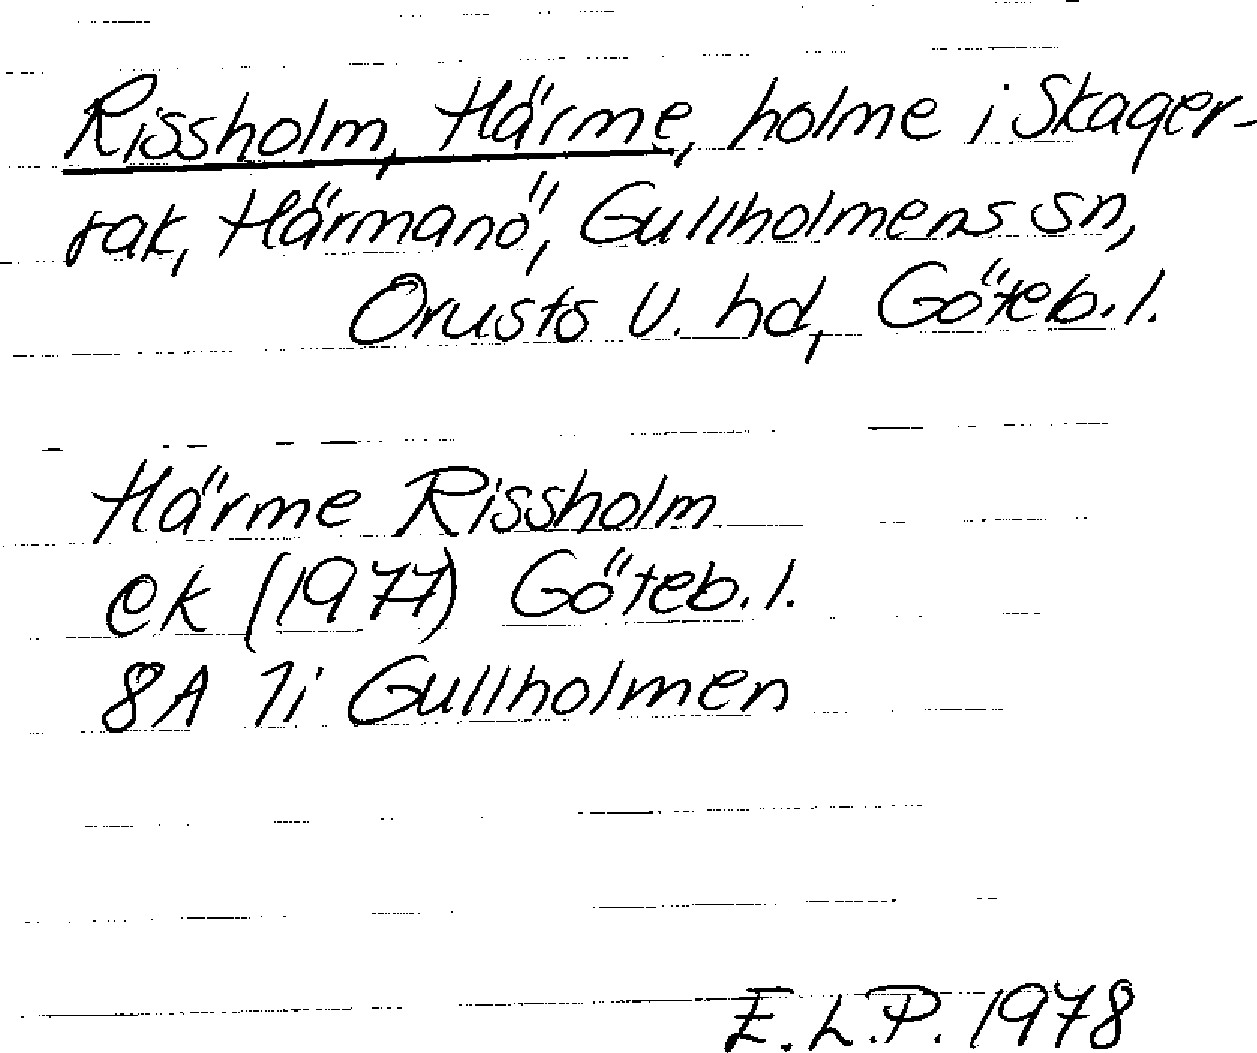 Rissholm, Härme, holme i Skager-
rak, Härmanö, Gullholmens sn,
Orusts V. hd, Göteb. l.
Härme Rissholm
ek (1977) Göteb. l.
8A 7i Gullholmen
E.L.P. 1978